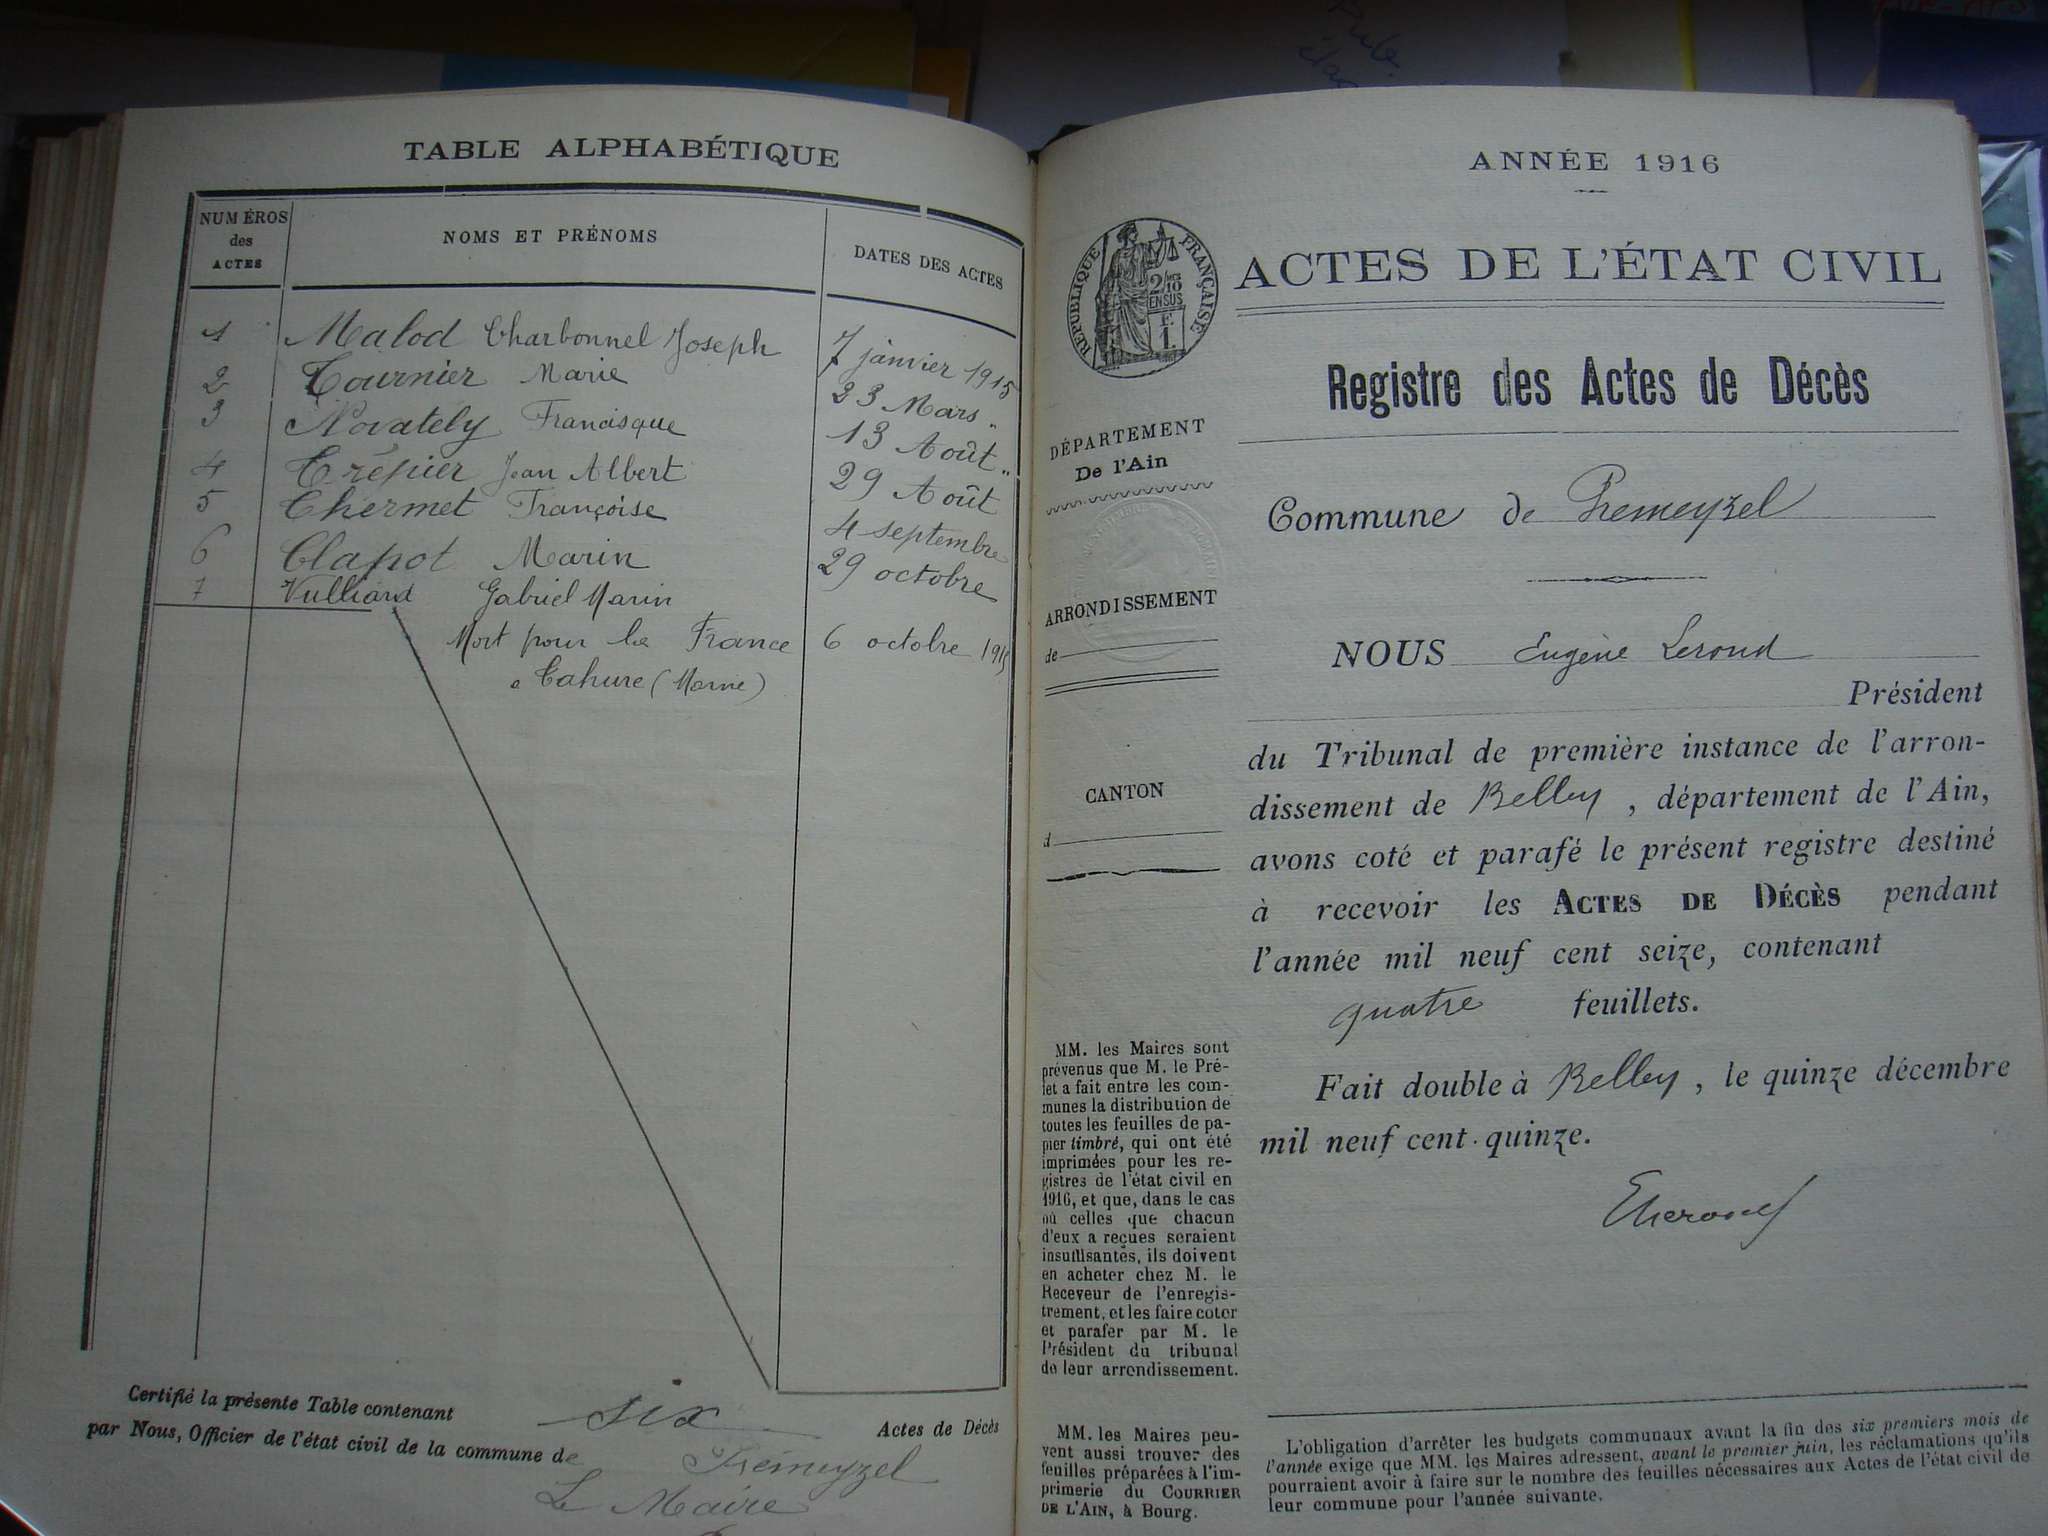 TABLE ALPHABÉTIQUE
NUMÉROS
des
ACTES
NOMS ET PRÉNOMS
DATES DES ACTES
1 Malod Charbonnel Joseph 7 janvier 1915
2 Tournier Marie 23 Mars "
3 Novately Francisque 13 Août "
4 Trépier Jean Albert 29 Août
5 Chermet Françoise 4 septembre
6 Clapot Marin 29 octobre
7 Vulliard Gabriel Marin
Mort pour la France 6 octobre 1915
a Tahure (Marne)
Certifié la présente Table contenant six Actes de Décès
par Nous, Officier de l'état civil de la commune de Prémeyzel
Le Maire
ANNÉE 1916
RÉPUBLIQUE FRANÇAISE
2/10
EN SUS
ACTES DE L'ÉTAT CIVIL
Registre des Actes de Décès
DÉPARTEMENT
De l'Ain
Commune de Premeyzel
ARRONDISSEMENT
de
NOUS Eugène Lerond
Président
du Tribunal de première instance de l'arron-
dissement de Belley, département de l'Ain,
avons coté et parafé le présent registre destiné
à recevoir les ACTES DE DÉCÈS pendant
l'année mil neuf cent seize, contenant
quatre feuillets.
Fait double à Belley, le quinze décembre
mil neuf cent quinze.
CANTON
d
MM. les Maires sont
prévenus que M. le Pré-
fet a fait entre les com-
munes la distribution de
toutes les feuilles de pa-
pier timbré, qui ont été
imprimées pour les re-
gistres de l'état civil en
1916, et que, dans le cas
où celles que chacun
d'eux a reçues seraient
insuffisantes, ils doivent
en acheter chez M. le
Receveur de l'enregis-
trement, et les faire coter
et parafer par M. le
Président du tribunal
de leur arrondissement.
MM. les Maires peu-
vent aussi trouver des
feuilles préparées à l'im-
primerie du COURRIER
DE L'AIN, à Bourg.
L'obligation d'arrêter les budgets communaux avant la fin des six premiers mois de
l'année exige que MM. les Maires adressent, avant le premier juin, les réclamations qu'ils
pourraient avoir à faire sur le nombre des feuilles nécessaires aux Actes de l'état civil de
leur commune pour l'année suivante.